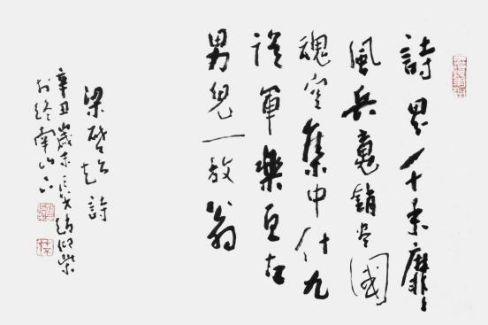 詩界千年靡々
風兵魂銷尽國
魂空集中什九
從軍樂亙古
男兒一放翁
梁啟超詩
辛丑歲末
於終南山下